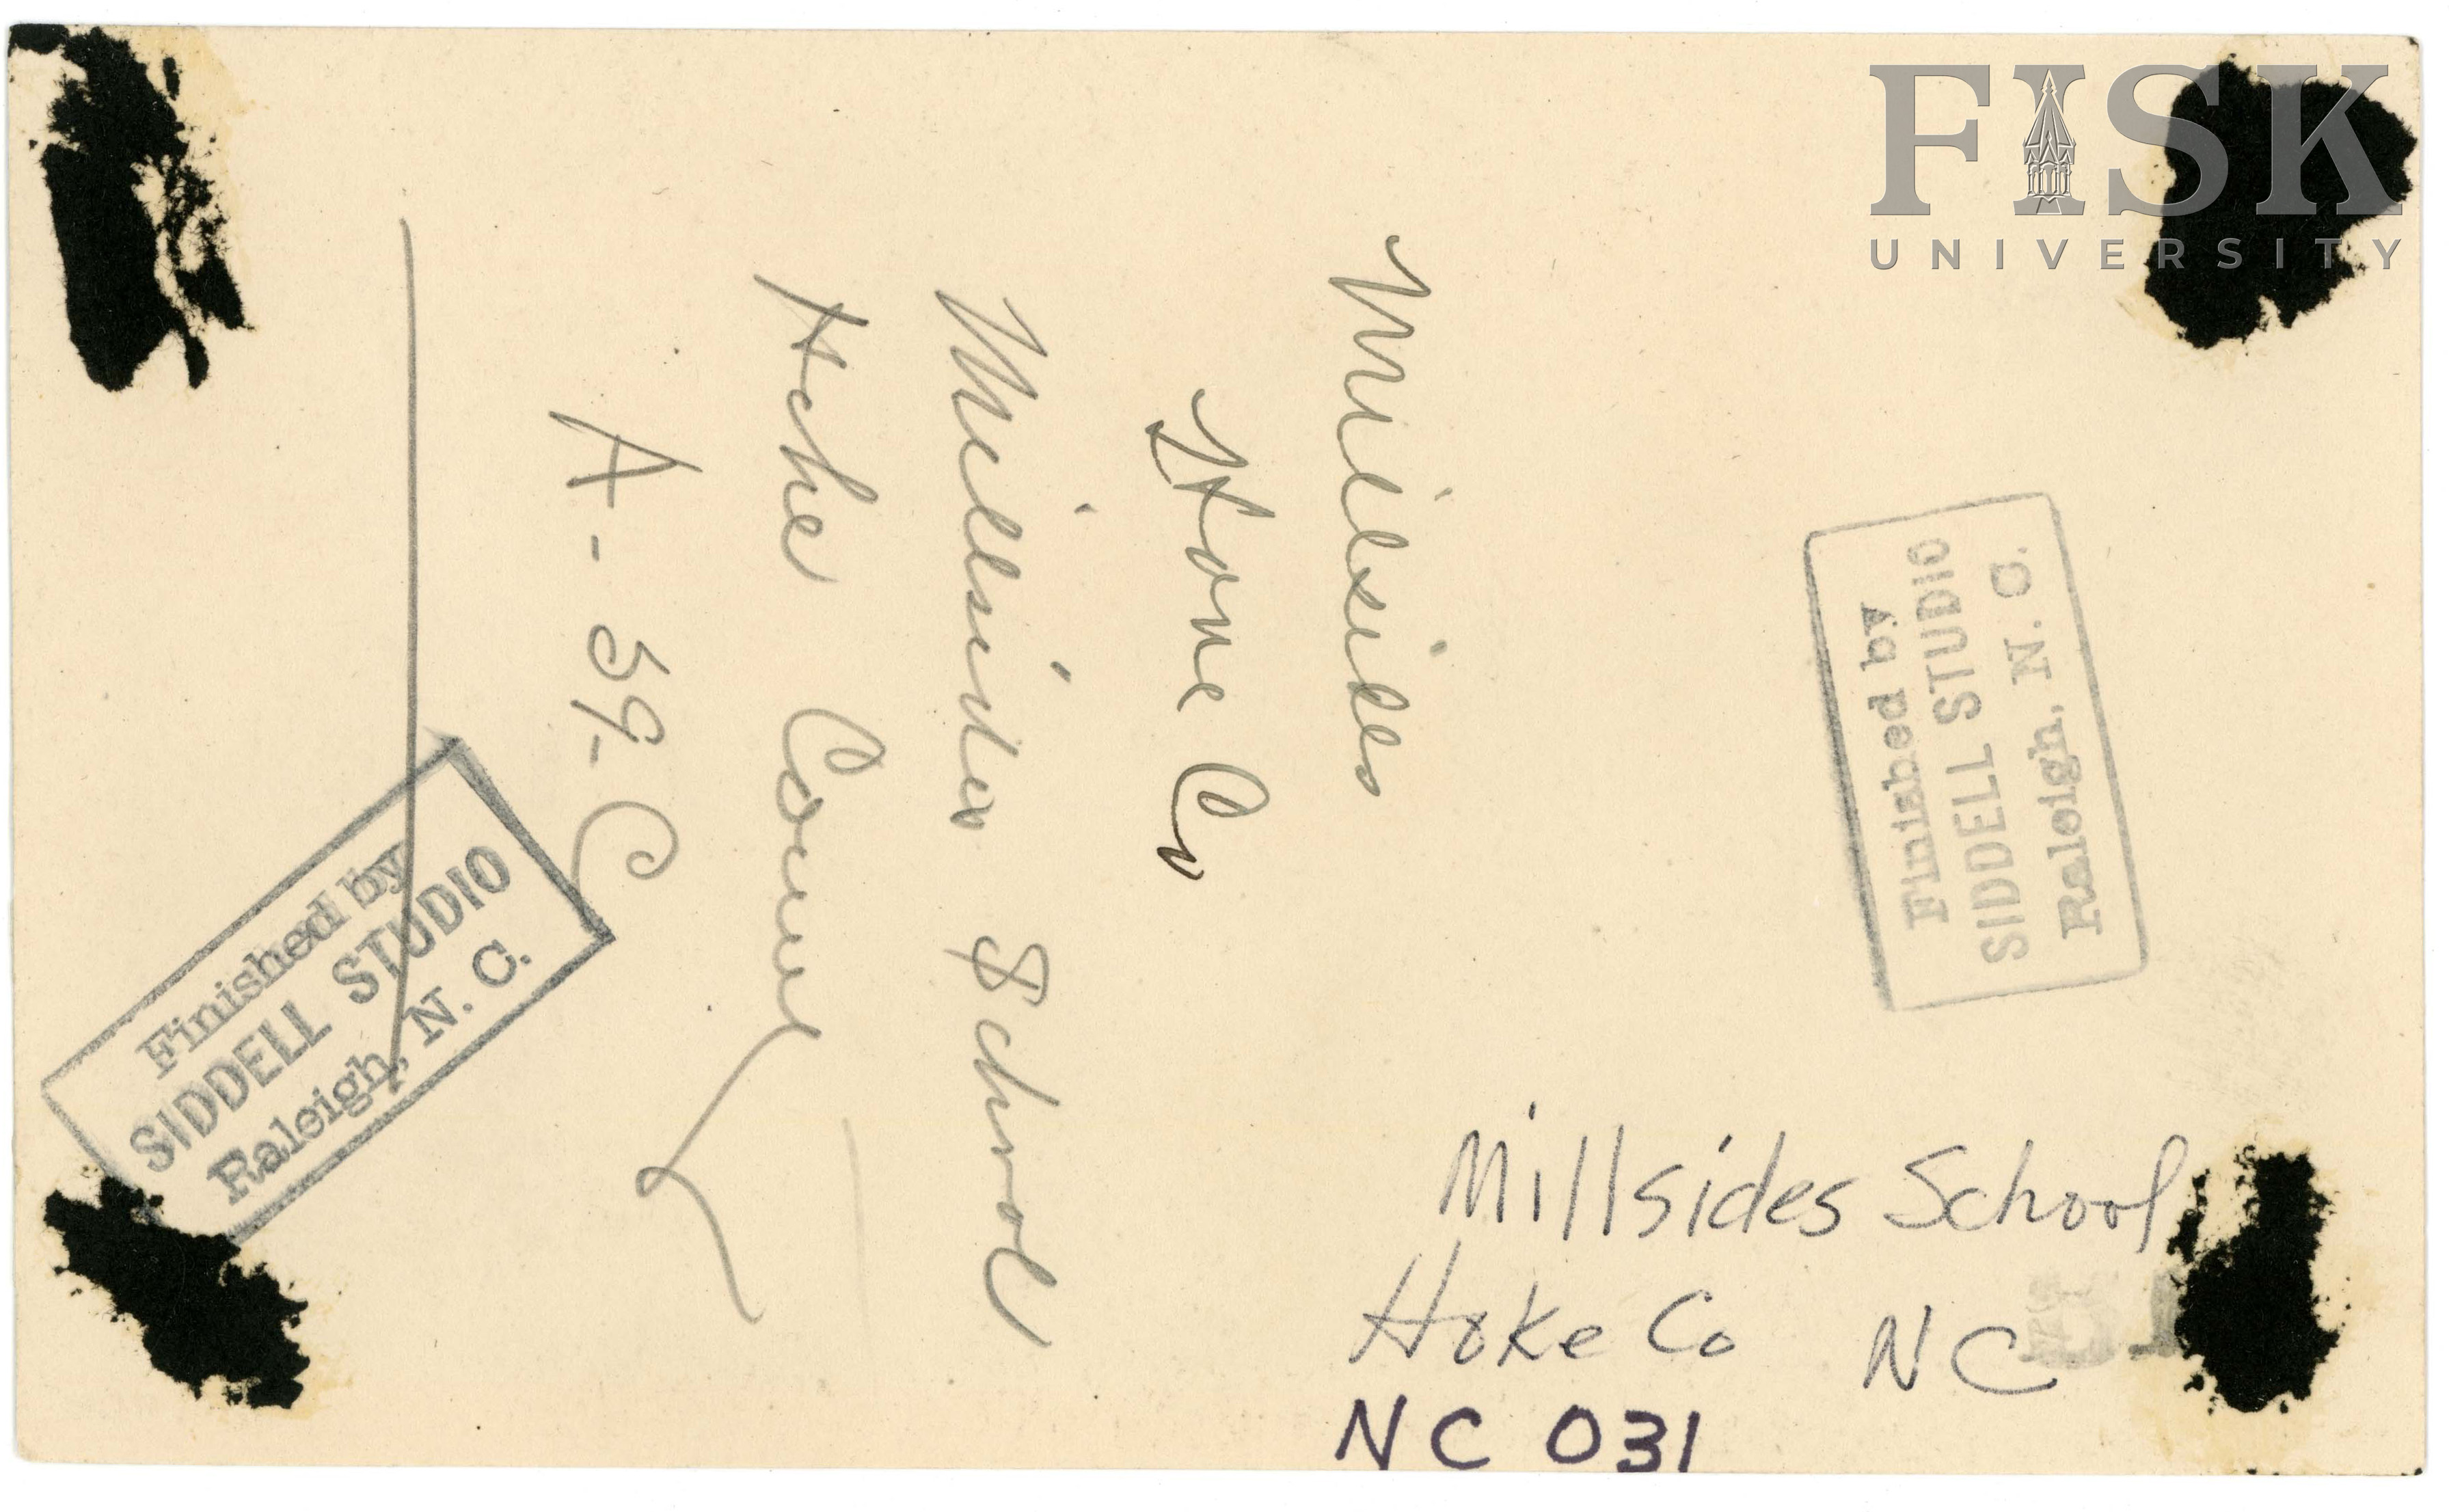 FISK
UNIVERSITY
Millsides
Hone Co
Millsides School
Hoke County
A-59-C
Finished by
SIDDELL STUDIO
Raleigh, N. C.
Finished by
SIDDELL STUDIO
Raleigh, N. C.
Millsides School
Hoke Co NC
NC 031